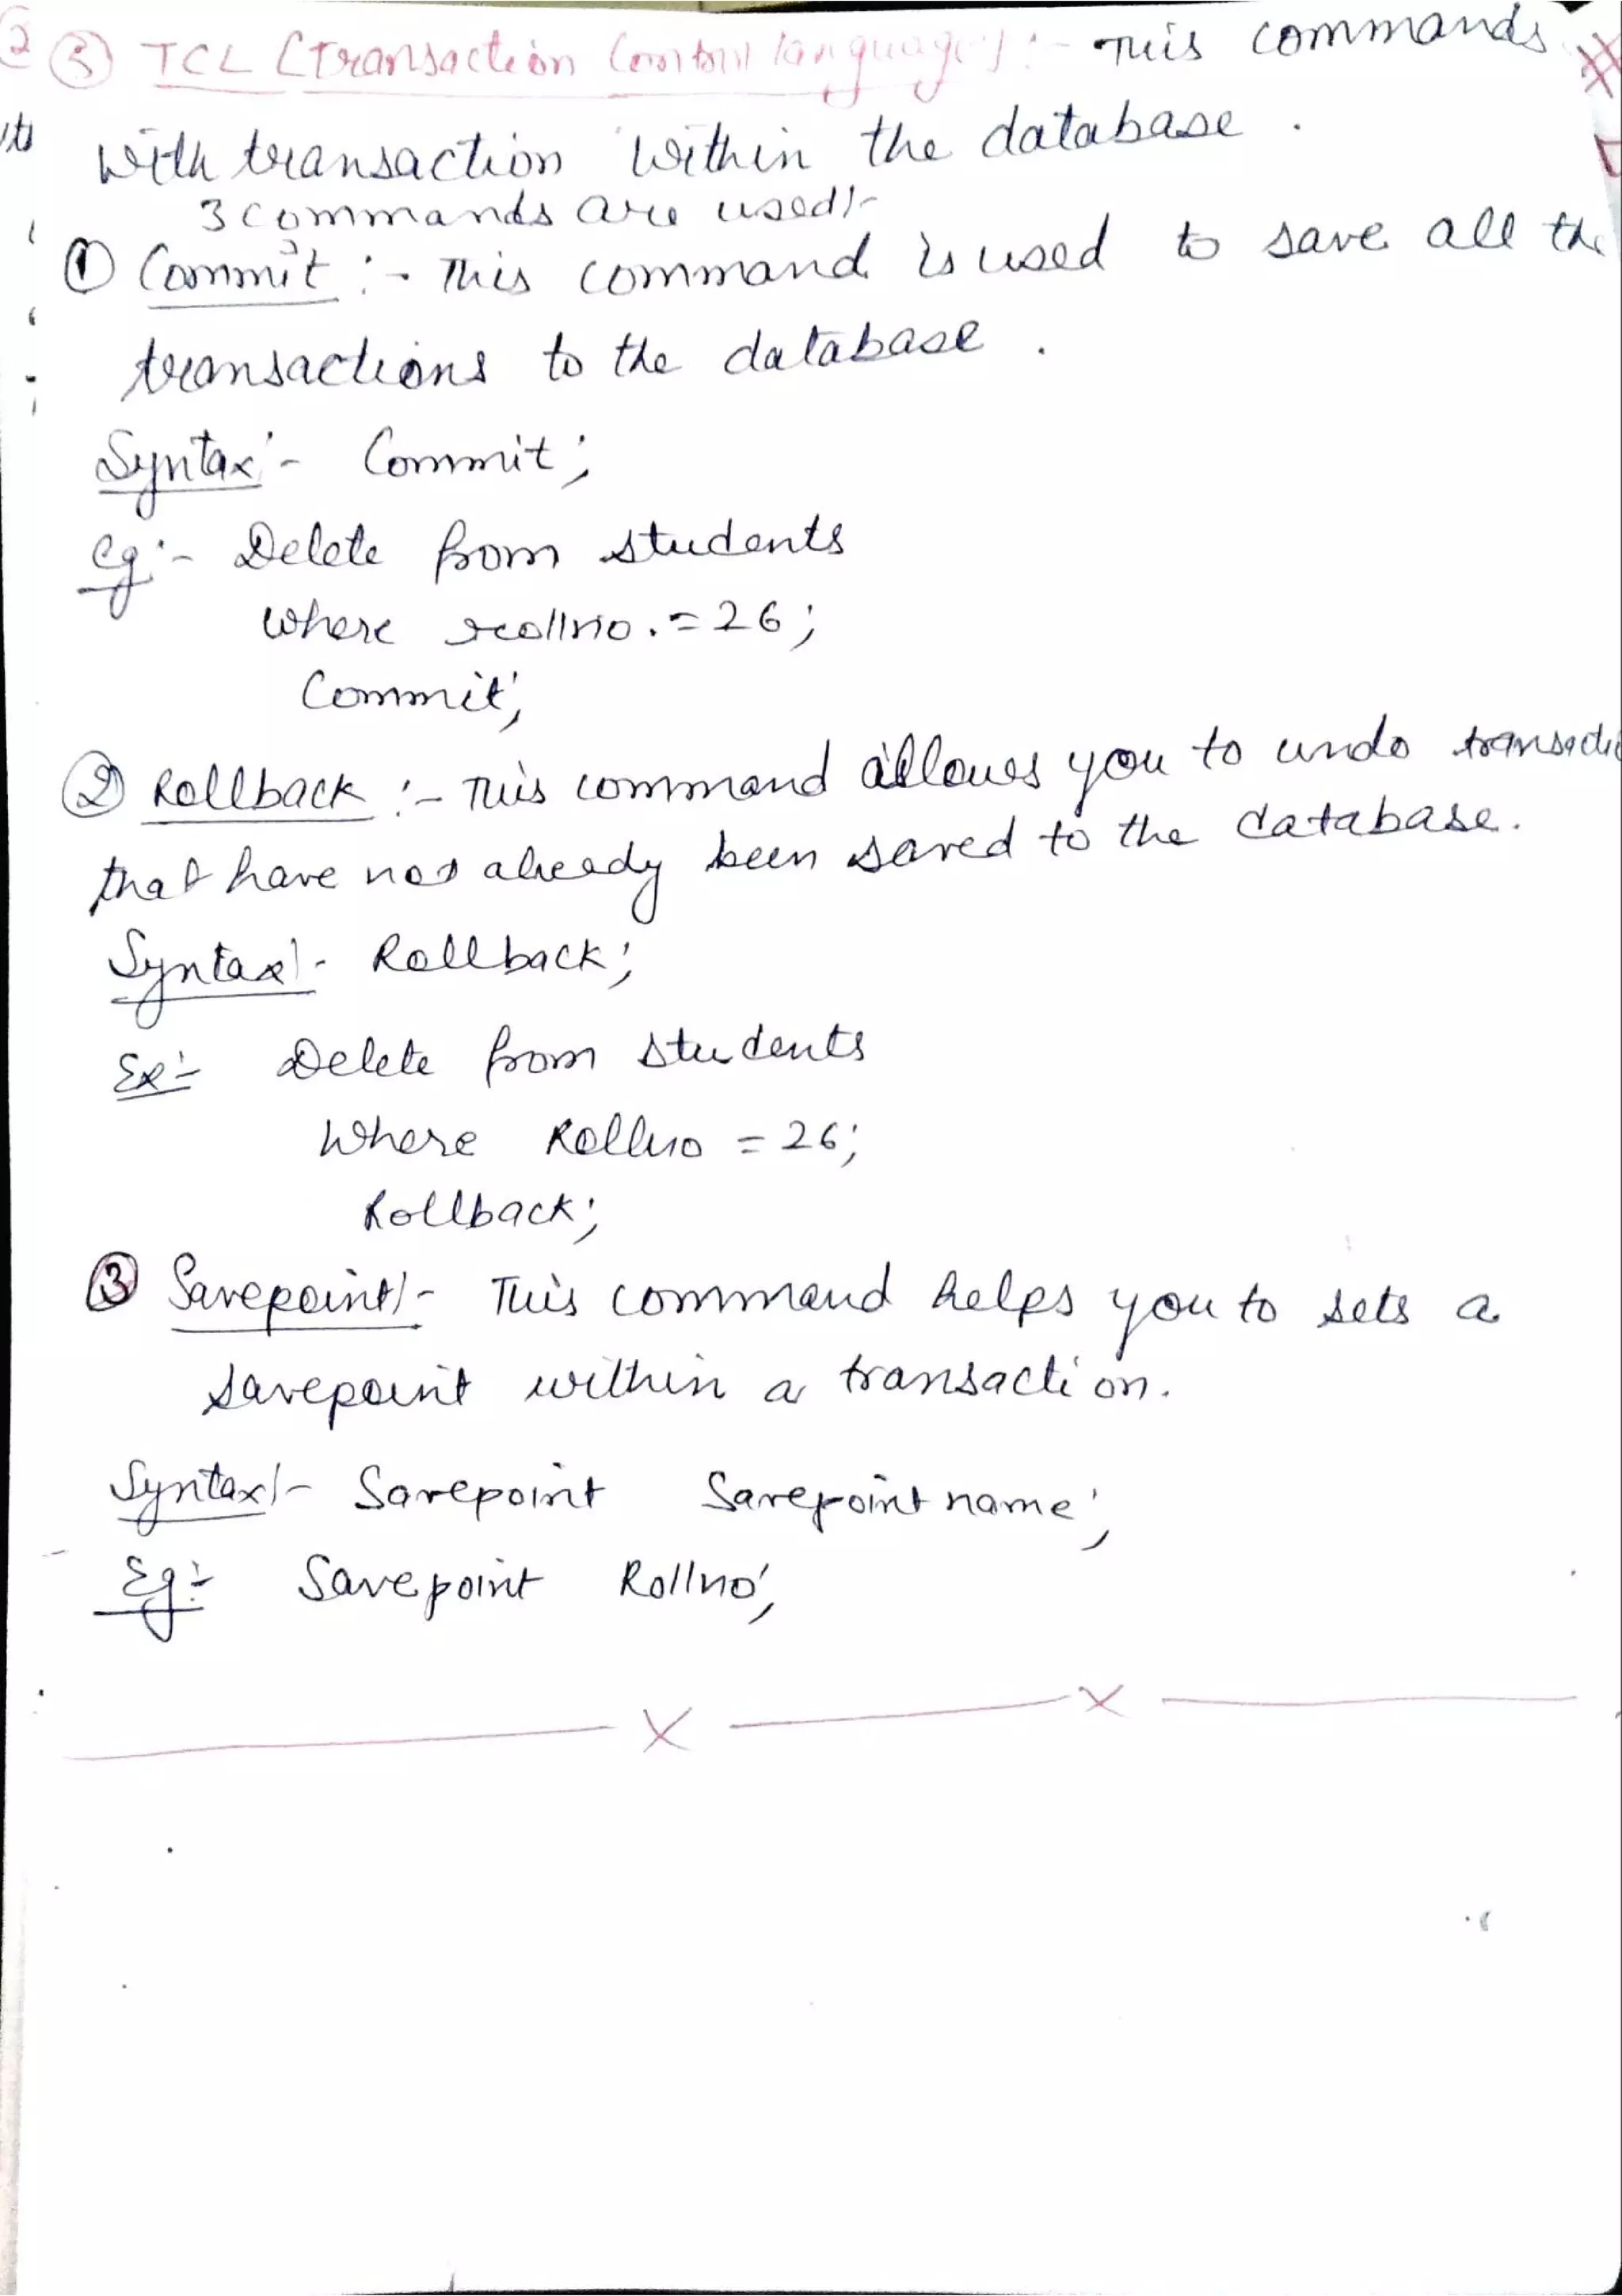 ③ TCL (Transaction Control language) :- This commands
with transaction within the database .
3 commands are used :-
① Commit :- This command is used to save all the
transactions to the database .
Syntax :- Commit ;
eg :- Delete from students
where rollno. = 26 ;
Commit ;
② Rollback :- This command allows you to undo transactio
that have not already been saved to the database .
Syntax :- Rollback ;
Ex :- Delete from students
Where Rollno = 26 ;
Rollback ;
③ Savepoint :- This command helps you to sets a
savepoint within a transaction .
Syntax :- Savepoint Savepoint name ;
Eg :- Savepoint Rollno ;